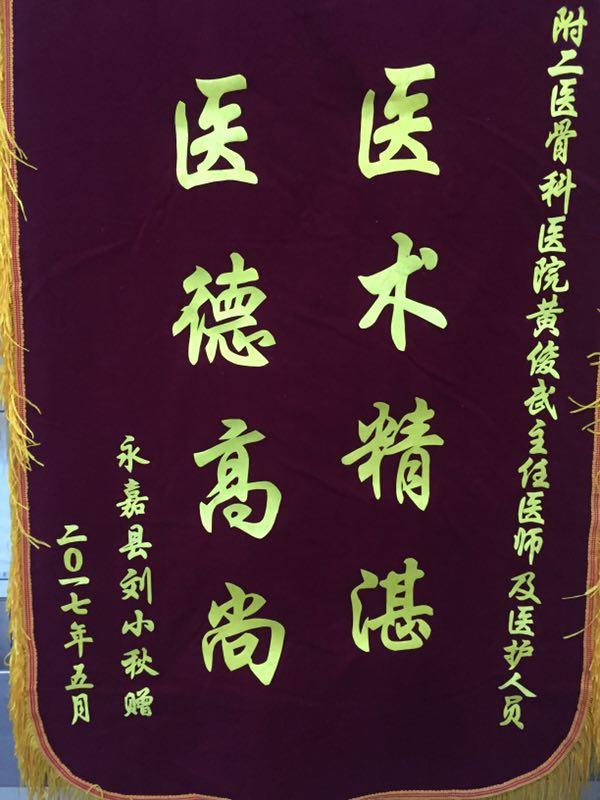 附二医骨科医院黄俊武主任医师及医护人员
医术精湛
医德高尚
永嘉县刘小秋赠
二〇一七年五月